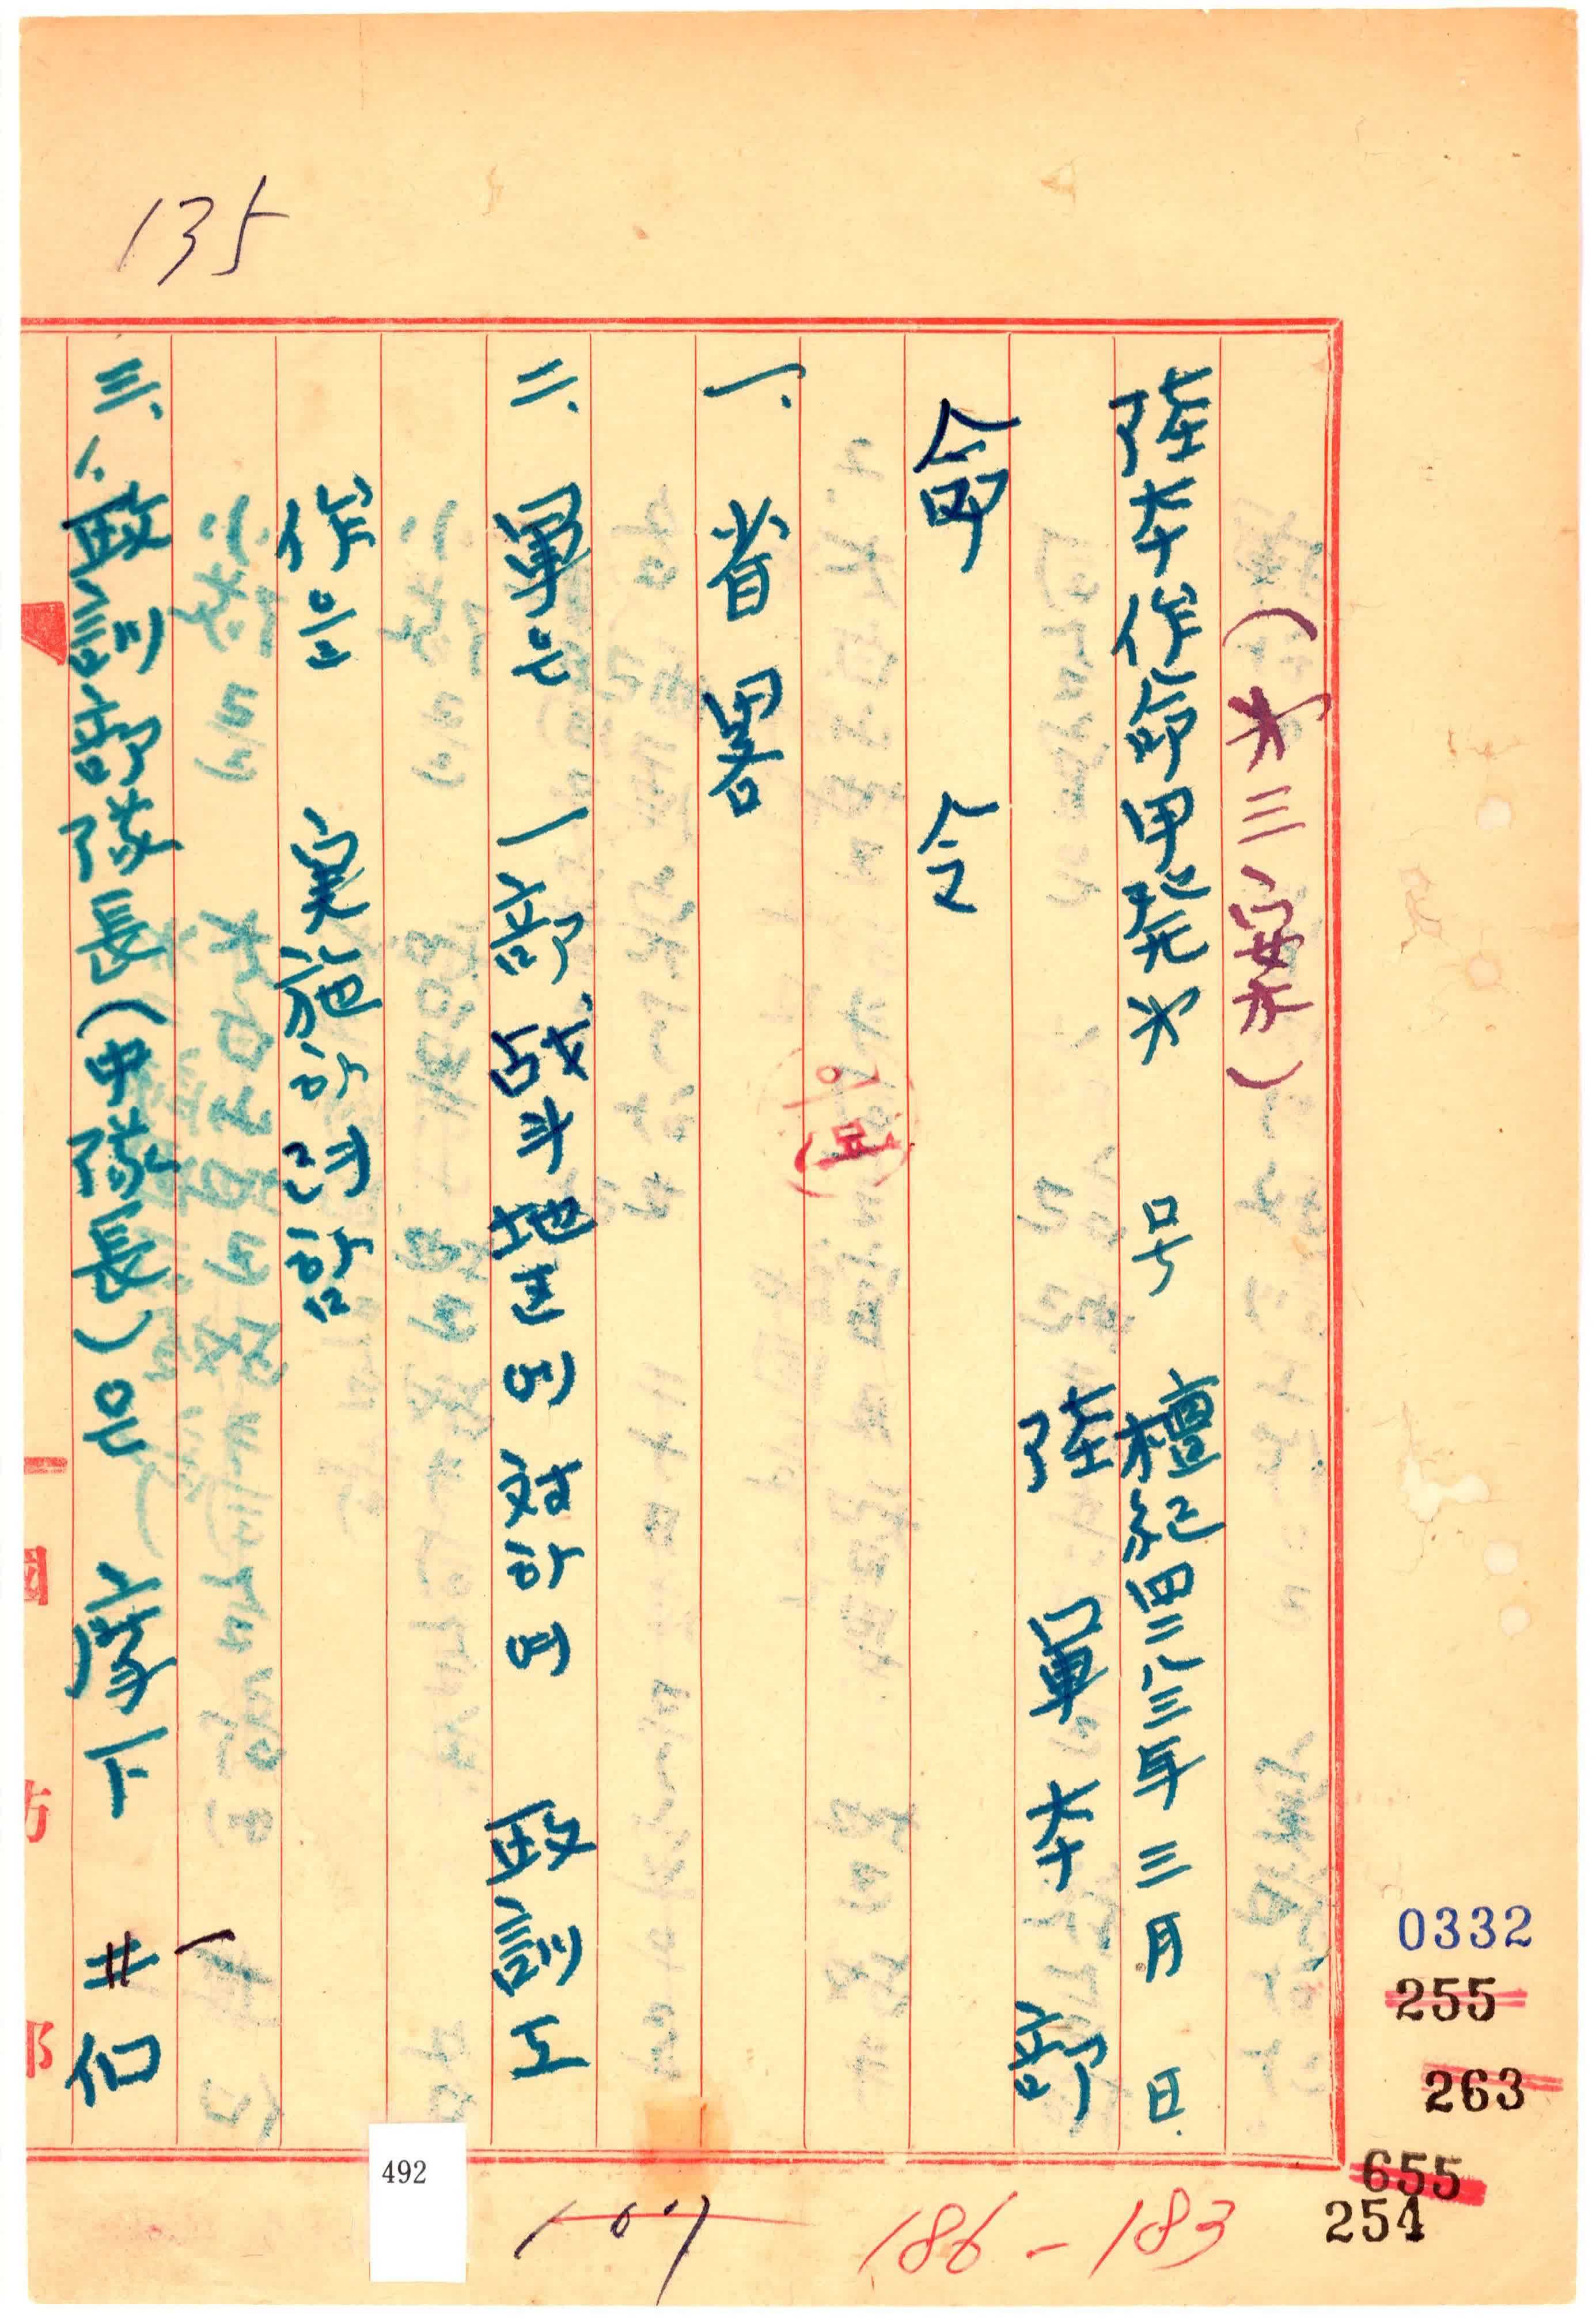 135
(才三案)
陸本作命甲発才 号 檀紀四二八三年三月 日
陸軍本部
命令
一. 省畧
二. 軍은 一部 战斗地区에 対하여 政訓工
作을 実施하려함
三. 1. 政訓部隊長(中隊長)은 麾下
0332
255
263
655
254
492
107
186-183